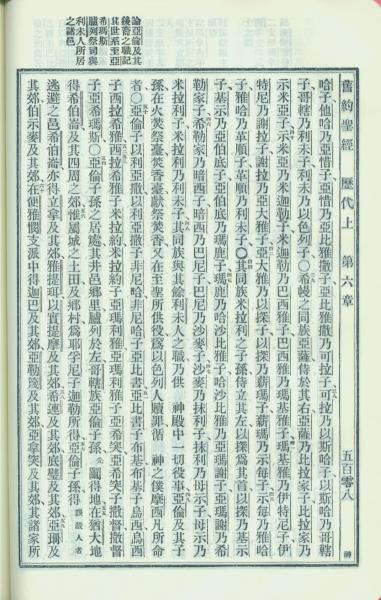 舊約聖經 歷代上 第六章 五百零八
哈子他哈乃亞惜子亞惜乃亞比雅撒子亞比雅撒乃可拉子可拉乃以斯哈子以斯哈乃哥轄
子哥轄乃利未子利未乃以色列子〇希幔之同族亞薩侍於其右亞薩乃比拉家子比拉家乃
示米亞子示米亞乃米迦勒子米迦勒乃巴西雅子巴西雅乃瑪基雅子瑪基雅乃伊特尼子伊
特尼乃謝拉子謝拉乃亞大雅子亞大雅乃以探子以探乃薪瑪子薪瑪乃示每子示每乃雅哈
子雅哈乃革順子革順乃利未子〇其同族米拉利之子孫侍立其左以探爲其首以探乃基示
子基示乃亞伯底子亞伯底乃瑪鹿子瑪鹿乃哈沙比雅子哈沙比雅乃亞瑪謝子亞瑪謝乃希
勒家子希勒家乃暗西子暗西乃巴尼子巴尼乃沙麥子沙麥乃抹利子抹利乃母示子母示乃
米拉利子米拉利乃利未子其同族與其餘利未人之職乃供 神殿中一切役事亞倫及其子
孫在火焚祭臺焚香臺獻祭焚香又在至聖所供役爲以色列人贖罪循 神之僕摩西凡所命
者〇亞倫子以利亞撒以利亞撒子非尼哈非尼哈子亞比書亞比書子布基布基子烏西烏西
子西拉希雅西拉希雅子米拉約米拉約子亞瑪利雅亞瑪利雅子亞希突亞希突子撒督撒督
子亞希瑪斯〇亞倫子孫之居處其井邑鄉里臚列於左哥轄族亞倫子孫先鬮得地在猶大地
得希伯崙及其四周之郊惟屬城之土田及鄉村爲耶孚尼子迦勒所得亞倫子孫得誤殺人者
逃避之邑希伯崙亦得立拿及其郊雅提珥以實提摩及其郊希連及其郊底璧及其郊亞珊及
其郊伯示麥及其郊在便雅憫支派中得迦巴及其郊亞勒篾及其郊亞拿突及其郊其諸家所
論亞倫及其
後裔之職記
其世系至亞
希瑪斯
臚列祭司與
利未人所居
之諸邑